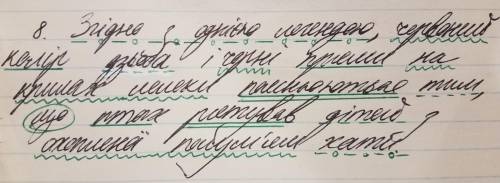 8. Згідно з однією легендою, червоний
колір дзьоба і чорні плями на
крилах лелеки пояснюються тим,
що птах рятував дітей
охопленої полум'ям хати